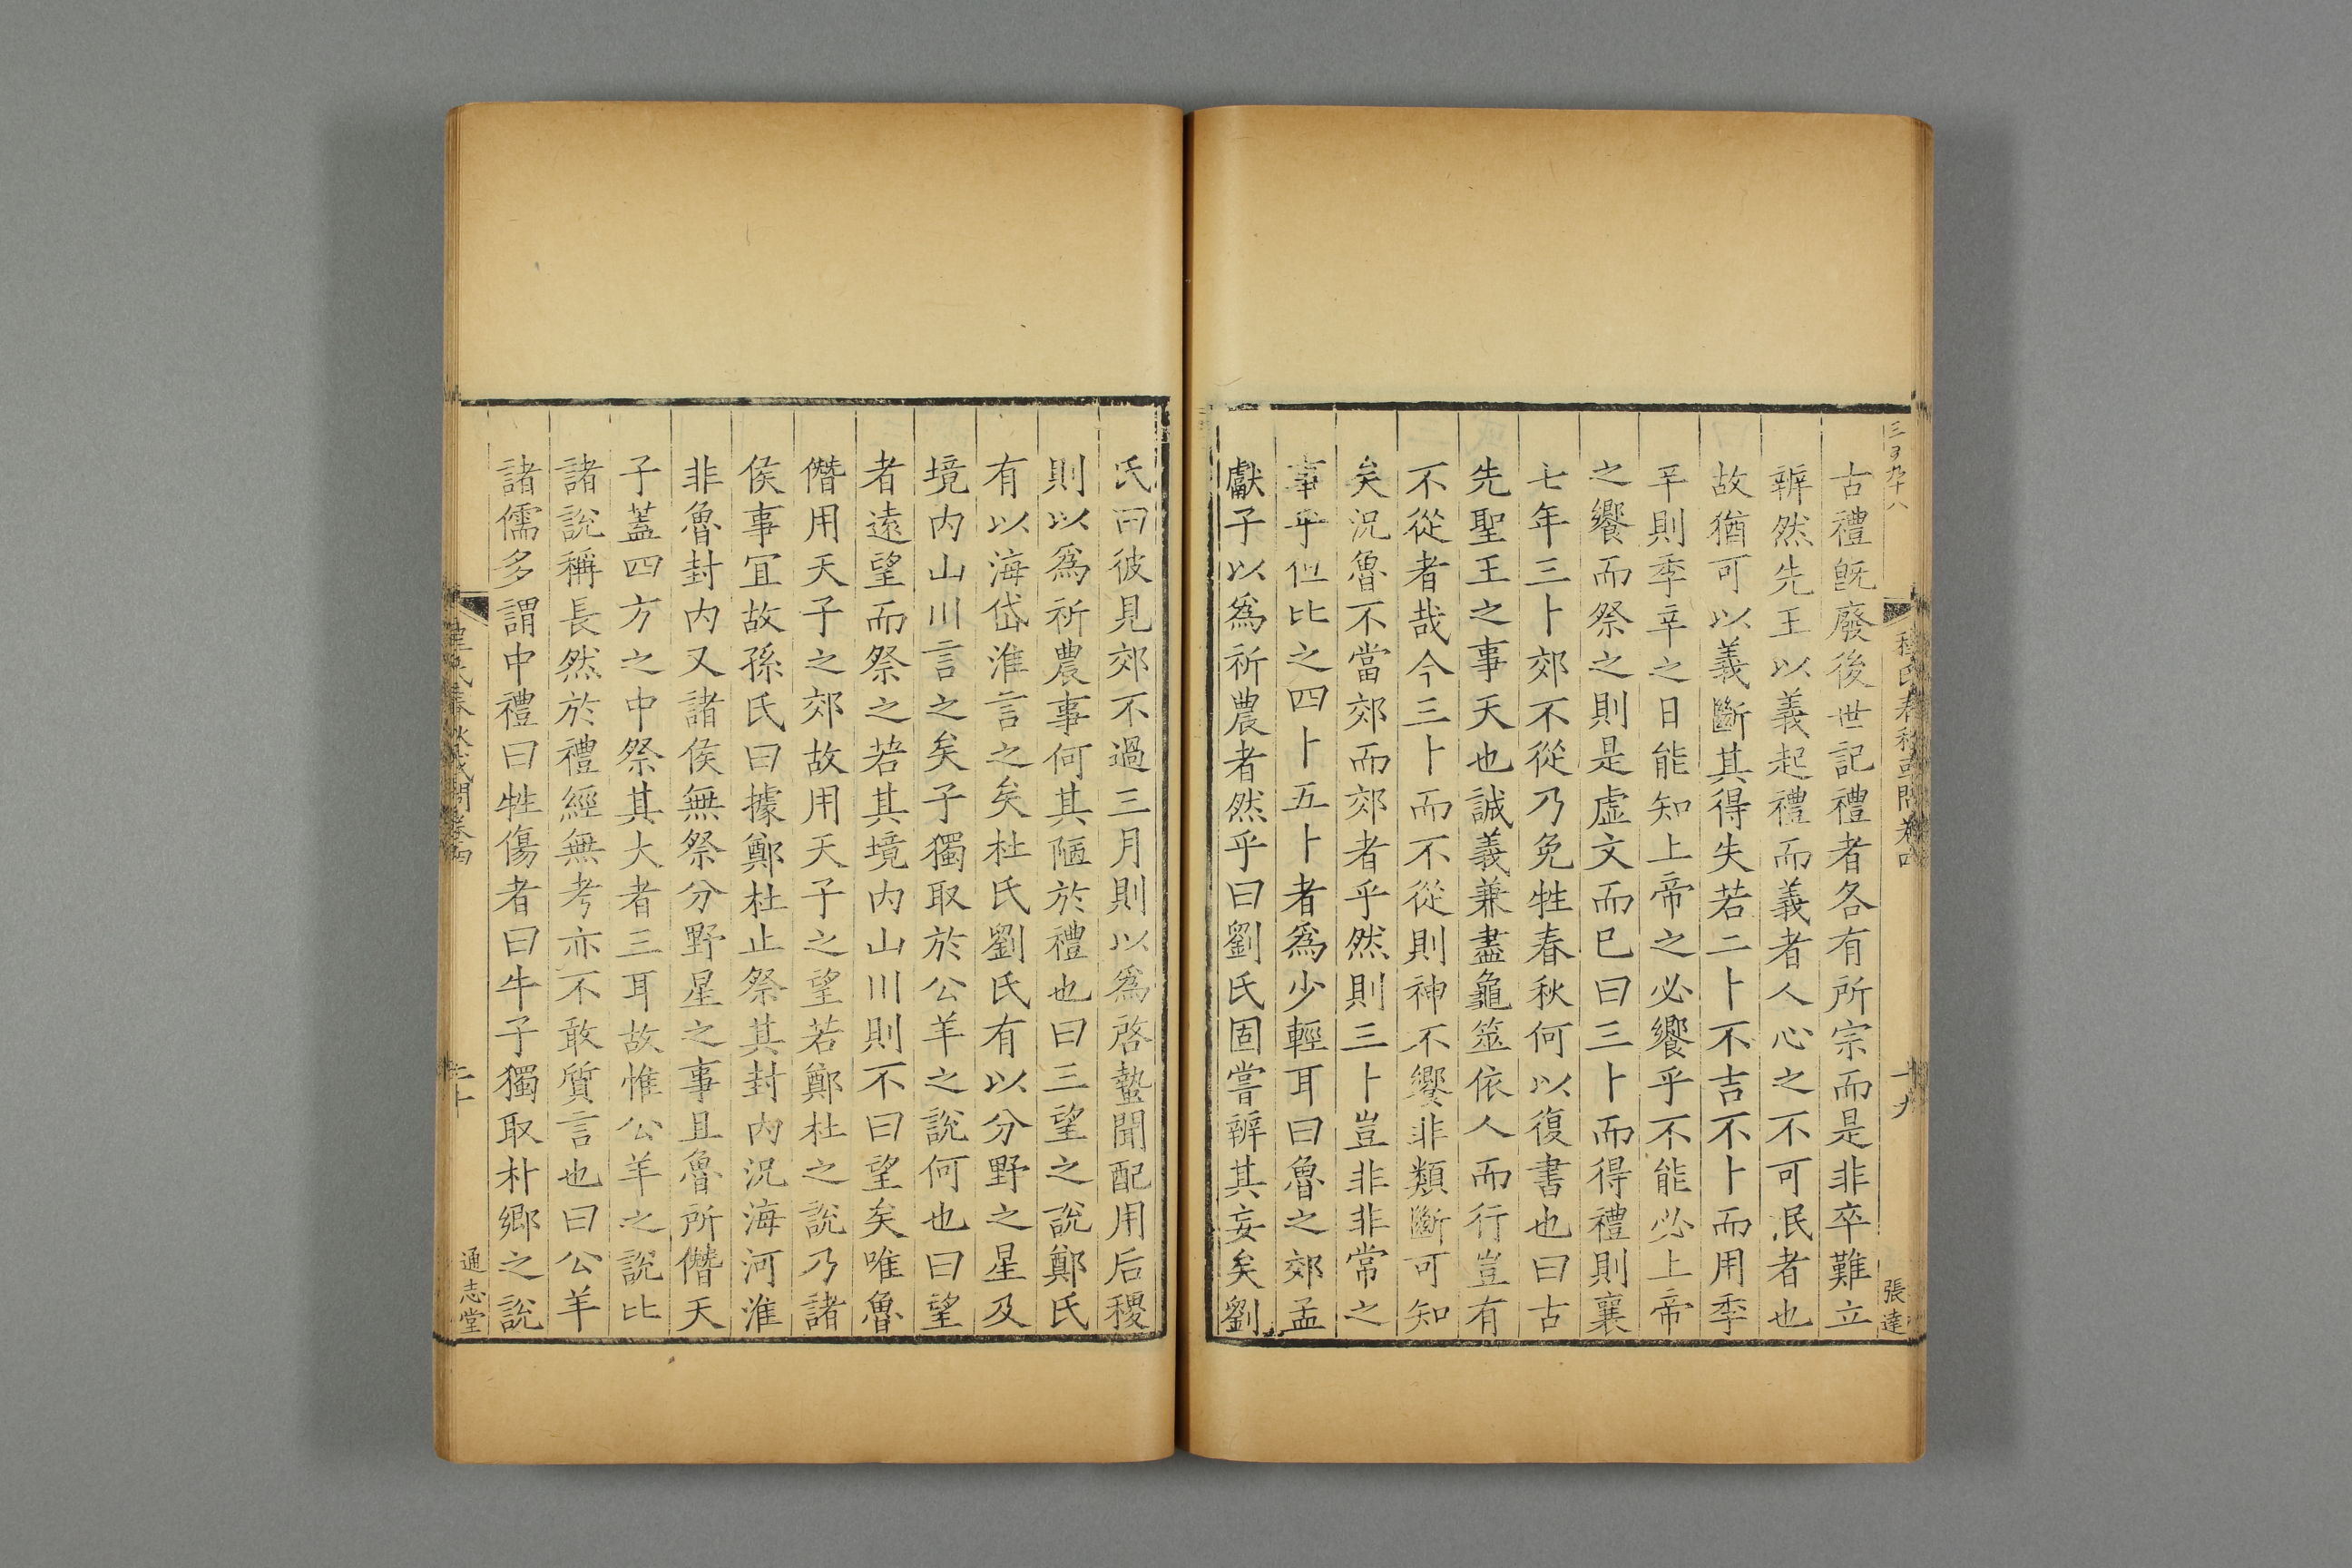 古禮旣廢後世記禮者各有所宗而是非卒難立
辨然先王以義起禮而義者人心之不可泯者也
故猶可以義斷其得失若二卜不吉不卜而用季
辛則季辛之日能知上帝之必饗乎不能必上帝
之饗而祭之則是虛文而巳曰三卜而得禮則襄
七年三卜郊不從乃免牲春秋何以復書也曰古
先聖王之事天也誠義兼盡龜筮依人而行豈有
不從者哉今三卜而不從則神不饗非類斷可知
矣況魯不當郊而郊者乎然則三卜豈非非常之
事乎但比之四卜五卜者爲少輕耳曰魯之郊孟
獻子以爲祈農者然乎曰劉氏固嘗辨其妄矣劉
程氏春秋或問卷四
十九
張達
氏曰彼見郊不過三月則以爲啓蟄聞配用后稷
則以爲祈農事何其陋於禮也曰三望之說鄭氏
有以海岱淮言之矣杜氏劉氏有以分野之星及
境内山川言之矣子獨取於公羊之說何也曰望
者遠望而祭之若其境内山川則不曰望矣唯魯
僭用天子之郊故用天子之望若鄭杜之說乃諸
侯事宜故孫氏曰據鄭杜止祭其封内況海河淮
非魯封内又諸侯無祭分野星之事且魯所僭天
子蓋四方之中祭其大者三耳故惟公羊之說比
諸說稱長然於禮經無考亦不敢質言也曰公羊
諸儒多謂中禮曰牲傷者曰牛子獨取朴鄉之說
程氏春秋或問卷四
二十
通志堂